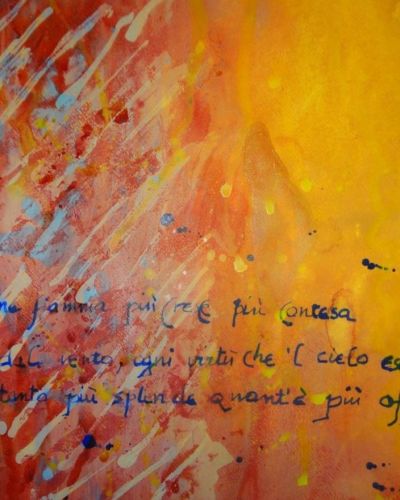 fiamma più cresce più contesa
dal vento, ogni virtù che 'l cielo es
tanto più splende quant'è più of